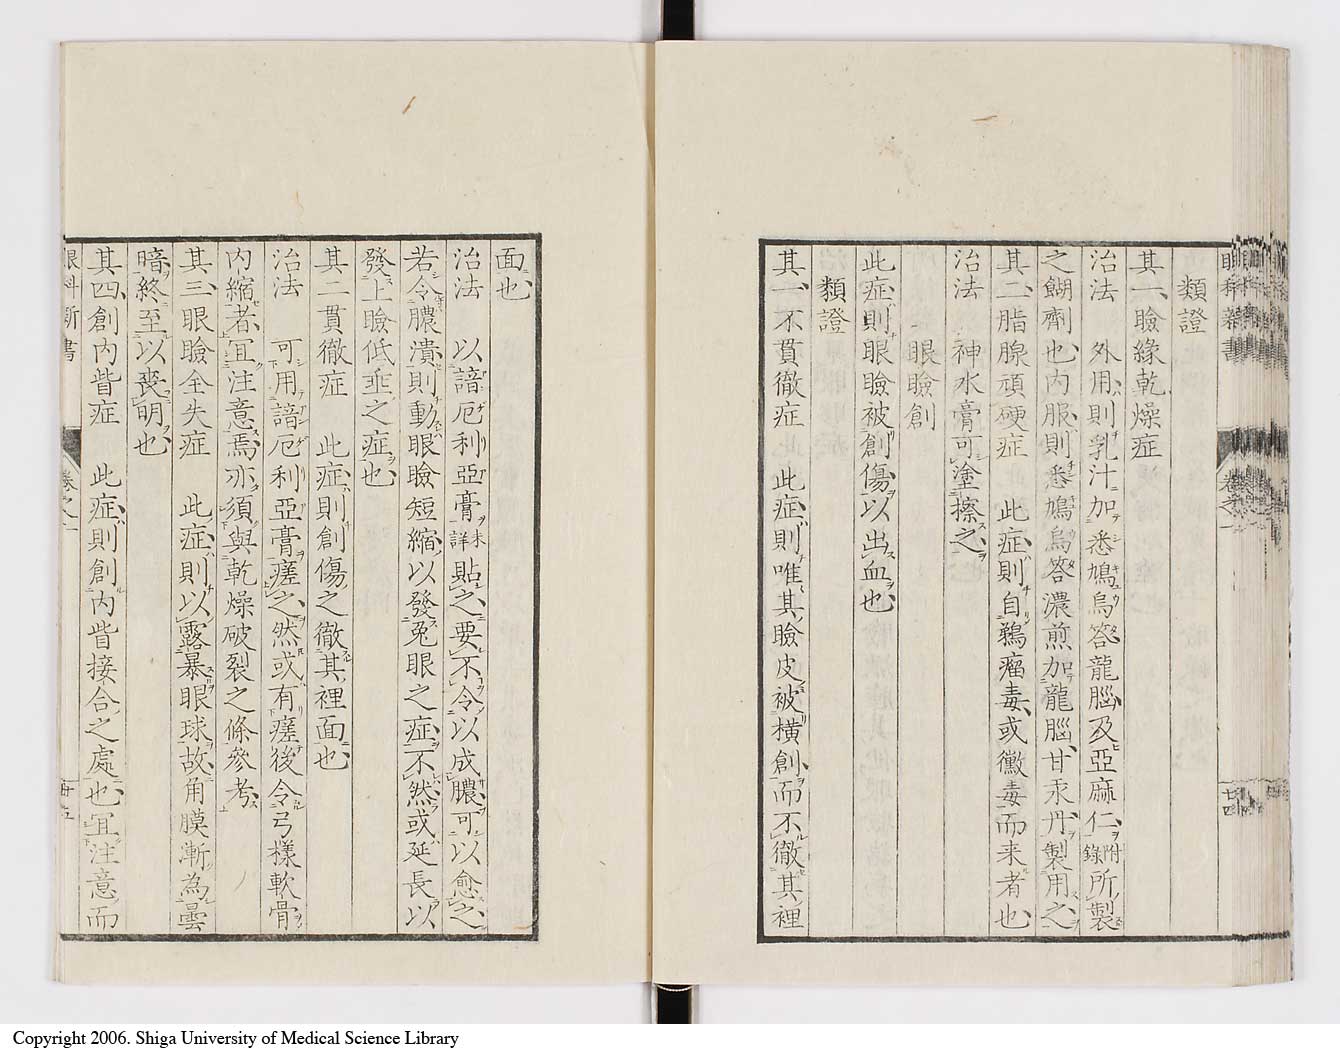 類證
其一、瞼緣乾燥症
治法 外用則乳汁加悉鳩烏答龍腦及亞麻仁附錄所製
之餬劑也、內服則悉鳩烏答濃煎加龍腦、甘汞丹製用之、
其二、脂腺頑硬症 此症則自鵜瘤毒、或黴毒而来者也、
治法 神水膏可塗擦之、
眼瞼創
此症則眼瞼被創傷以出血也、
類證
其一、不貫徹症 此症則唯其瞼皮被橫創、而不徹其裡
面也、
治法 以諳厄利亞膏未詳貼之、要不令以成膿、可以愈之、
若令膿潰則動眼瞼短縮、以發兔眼之症、不然或延長以
發上瞼低垂之症也、
其二貫徹症 此症則創傷之徹其裡面也、
治法 可用諳厄利亞膏瘥之、然或有瘥後令弓樣軟骨
內縮者、宜注意焉、亦須與乾燥破裂之條參考、
其三、眼瞼全失症 此症則以露暴眼球故、角膜漸為曇
暗、終至以喪明也、
其四、創內眥症 此症則創內眥接合之處也、宜注意而
眼科新書 卷之一 廿五
Copyright 2006. Shiga University of Medical Science Library